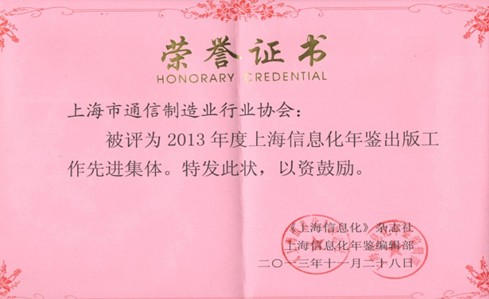 荣誉证书
HONORARY CREDENTIAL
上海市通信制造业行业协会：
被评为2013年度上海信息化年鉴出版工
作先进集体。特发此状，以资鼓励。
《上海信息化》杂志社
上海信息化年鉴编辑部
二〇一三年十一月二十八日